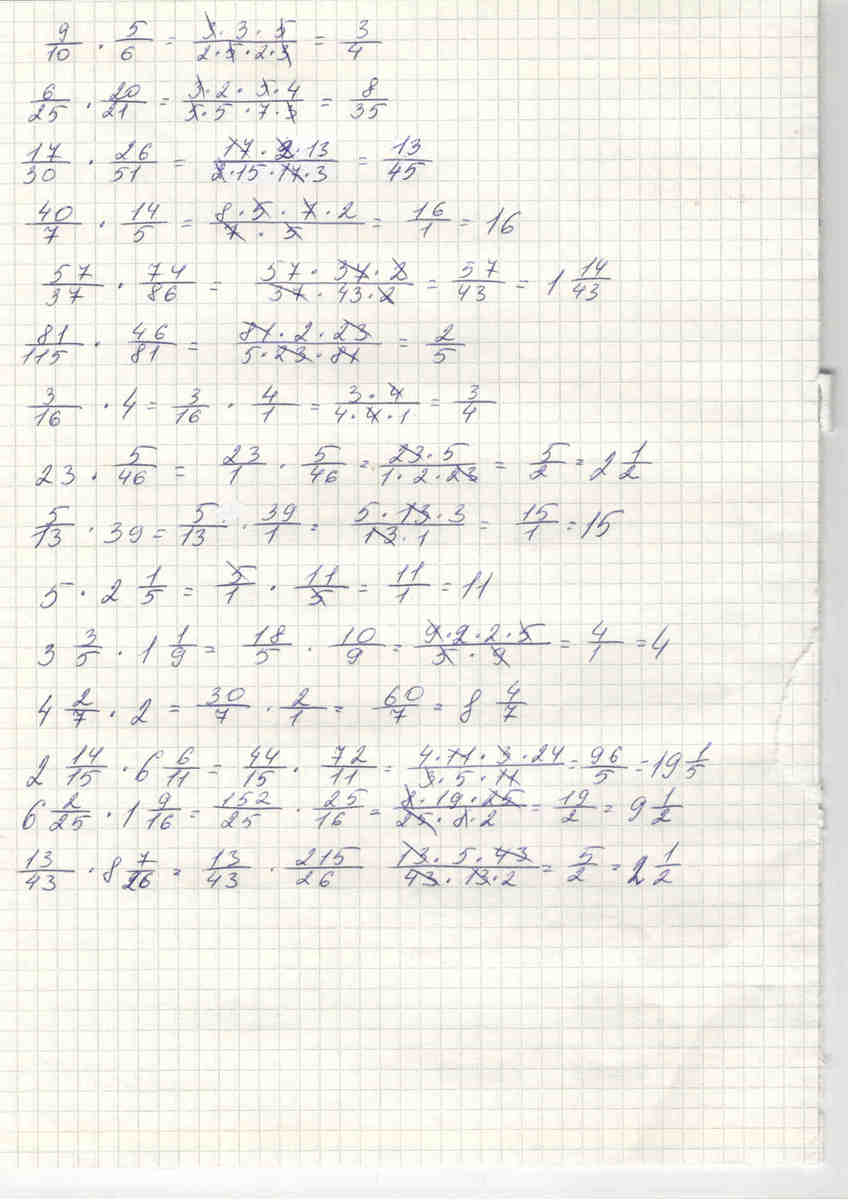 9/10 · 5/6 = 3·3·5/2·5·2·3 = 3/4
6/25 · 20/21 = 3·2·5·4/5·5·7·3 = 8/35
17/30 · 26/51 = 17·2·13/2·15·17·3 = 13/45
40/7 · 14/5 = 8·5·7·2/7·5 = 16/1 = 16
57/37 · 74/86 = 57·37·2/37·43·2 = 57/43 = 1 14/43
81/115 · 46/81 = 81·2·23/5·23·81 = 2/5
3/16 · 4 = 3/16 · 4/1 = 3·4/4·4·1 = 3/4
23 · 5/46 = 23/1 · 5/46 = 23·5/1·2·23 = 5/2 = 2 1/2
5/13 · 39 = 5/13 · 39/1 = 5·13·3/13·1 = 15/1 = 15
5 · 2 1/5 = 5/1 · 11/5 = 11/1 = 11
3 3/5 · 1 1/9 = 18/5 · 10/9 = 9·2·2·5/5·9 = 4/1 = 4
4 2/7 · 2 = 30/7 · 2/1 = 60/7 = 8 4/7
2 14/15 · 6 6/11 = 44/15 · 72/11 = 4·11·3·24/3·5·11 = 96/5 = 19 1/5
6 2/25 · 1 9/16 = 152/25 · 25/16 = 8·19·25/25·8·2 = 19/2 = 9 1/2
13/43 · 8 7/26 = 13/43 · 215/26 13·5·43/43·13·2 = 5/2 = 2 1/2